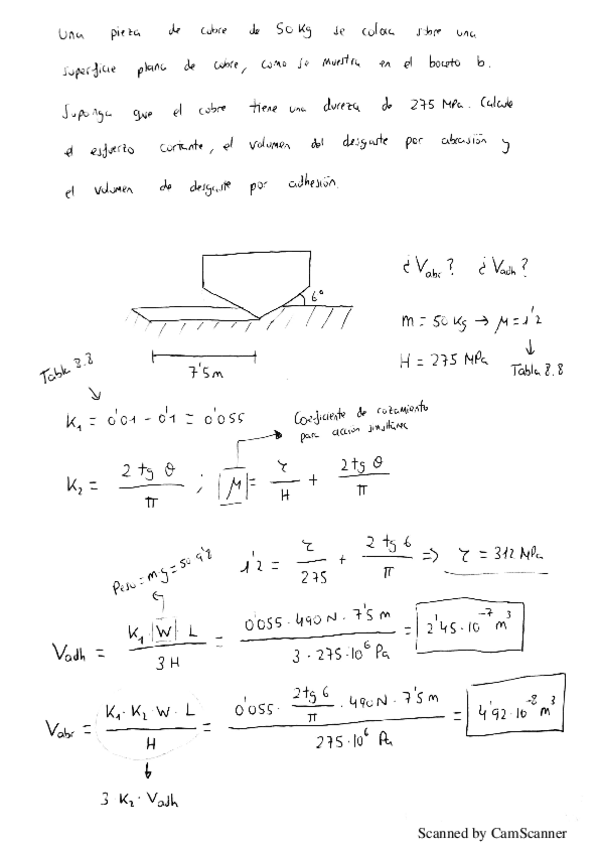 Una pieza de cobre de 50 Kg se coloca sobre una
superficie plana de cobre, como se muestra en el boceto b.
Suponga que el cobre tiene una dureza de 275 MPa. Calcule
el esfuerzo cortante, el volumen del desgaste por abrasión y
el volumen de desgaste por adhesión.
6°
7'5 m
¿Vabr? ¿Vadh?
m = 50 Kg → μ = 1'2
H = 275 MPa
Tabla 8.8
Tabla 8.8
K₁ = 0'01 - 0'1 = 0'055
Coeficiente de rozamiento
para acción simultánea
K₂ = 2 tg θ / π ; μ = τ / H + 2 tg θ / π
1'2 = τ / 275 + 2 tg 6 / π ⇒ τ = 312 MPa
Peso = m·g = 50·9'8
Vadh = K₁ W L / 3 H = 0'055 · 490 N · 7'5 m / 3 · 275·10⁶ Pa = 2'45·10⁻⁷ m³
Vabr = K₁ · K₂ · W · L / H = 0'055 · 2 tg 6 / π · 490 N · 7'5 m / 275·10⁶ Pa = 4'92·10⁻⁸ m³
3 K₂ · Vadh
Scanned by CamScanner